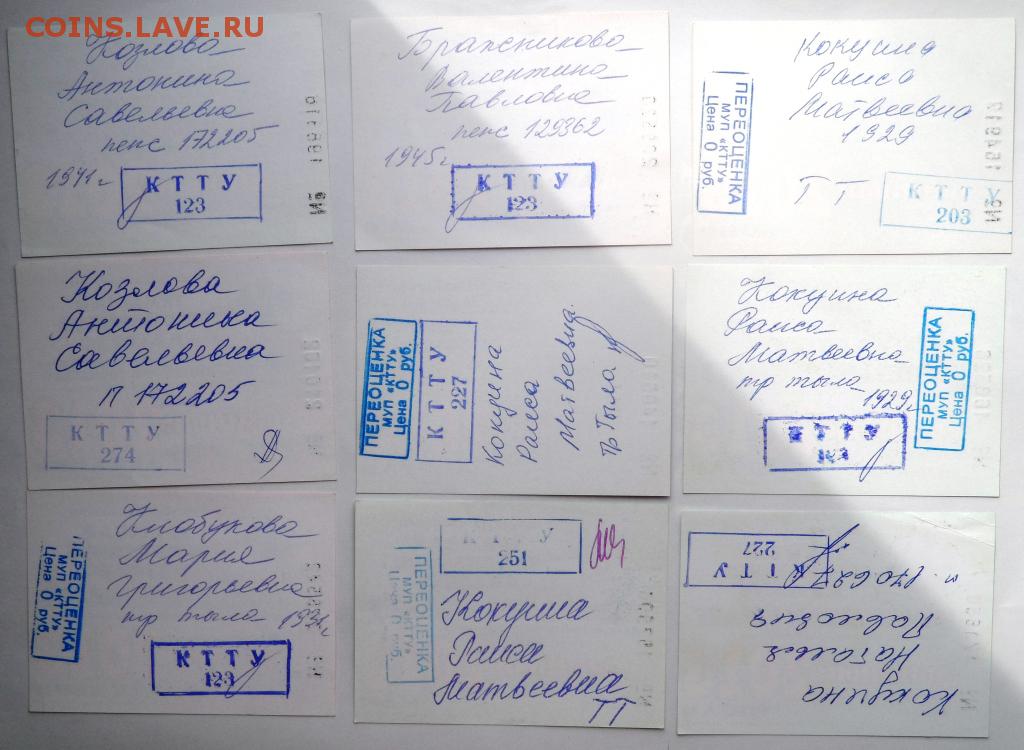 COINS.LAVE.RU
Козлова
Антонина
Савельевна
пенс 172205
1941 г
КТТУ
123
Гражсникова
Валентина
Павловна
пенс 129362
1945 г
КТТУ
123
Кокуина
Раиса
Матвеевна
1929
ТТ
ПЕРЕОЦЕНКА
МУП «КТТУ»
Цена 0 руб.
КТТУ
203
Козлова
Антонина
Савельевна
П 172205
КТТУ
274
ПЕРЕОЦЕНКА
МУП «КТТУ»
Цена 0 руб.
КТТУ
227
Кокуина
Раиса
Матвеевна
Тр Тыла
Кокуина
Раиса
Матвеевна
тр тыла
1929 г
КТТУ
ПЕРЕОЦЕНКА
МУП «КТТУ»
Цена 0 руб.
Клобукова
Мария
Григорьевна
тр тыла
ПЕРЕОЦЕНКА
МУП «КТТУ»
Цена 0 руб.
КТТУ
123
КТТУ
251
ПЕРЕОЦЕНКА
МУП «КТТУ»
Цена 0 руб.
Кокуина
Раиса
Матвеевна
ТТ
Кокуина
Наталья
Павловна
КТТУ
227